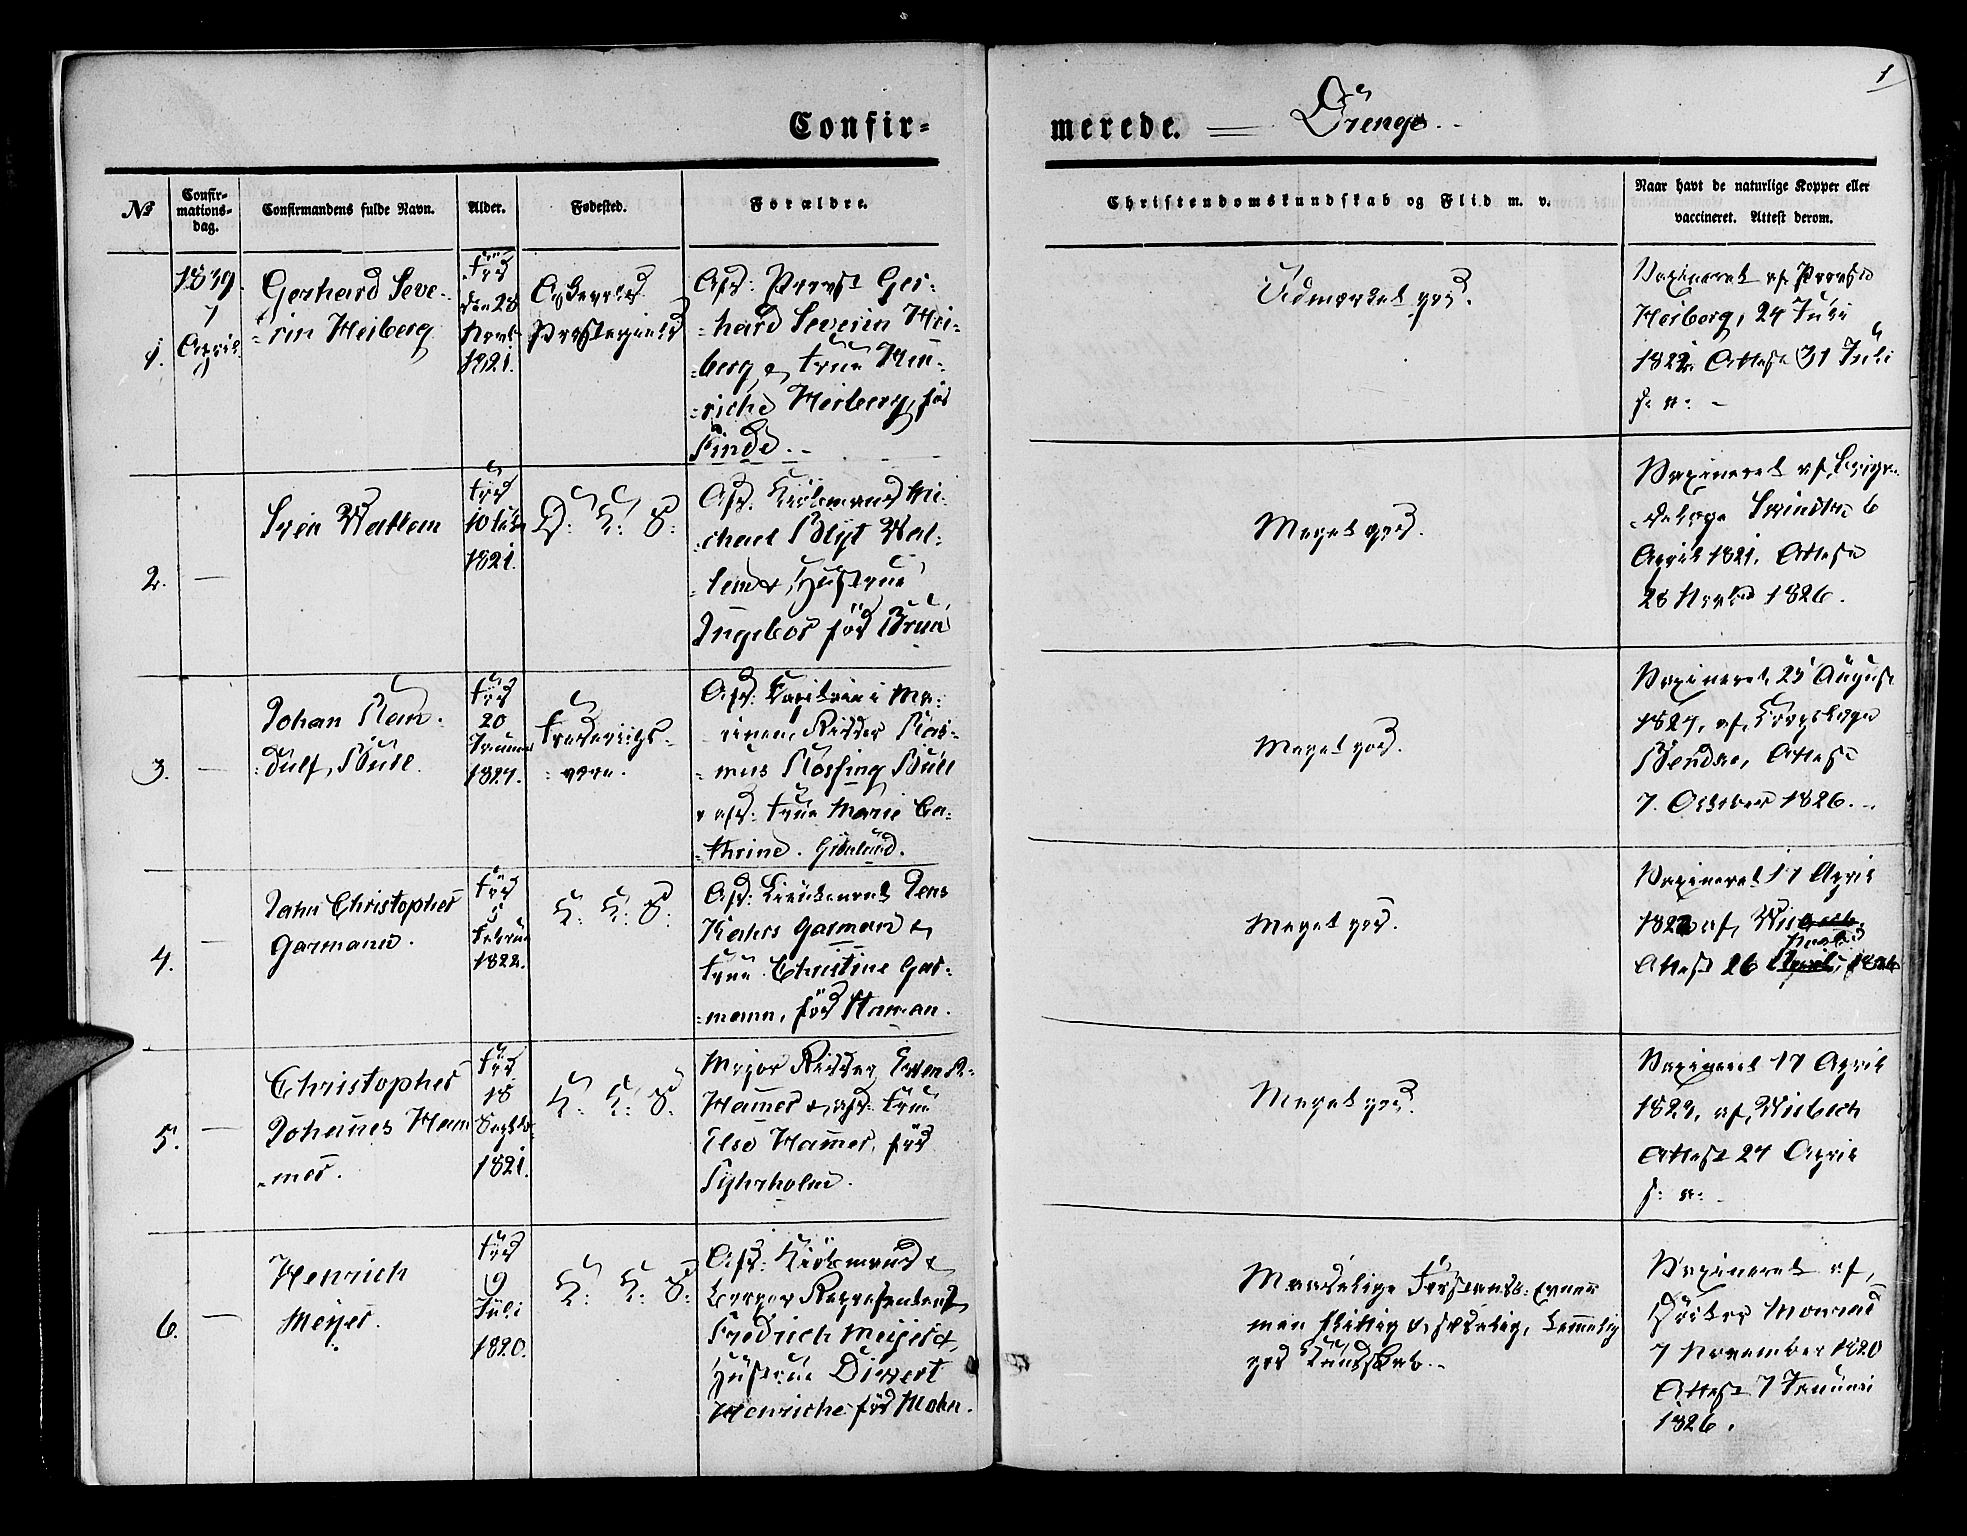 1
Confir-
merede. — Drenge.
No
Confir-
mations-
dag.
Confirmandens fulde Navn.
Alder.
Fødested.
Forældre.
Christendomskundskab og Flid m. v.
Naar havt de naturlige Kopper eller
vaccineret. Attest derom.
1.
1839.
7
April
Gerhard Seve-
rin Heiberg
Født
den 28
Novb
1821.
Askevolds
Præstegield
Afd: Provst Ger-
hard Severin Hei-
berg & Frue Hen-
riche Heiberg, fød
Finde.
Udmærket god.
Vaxineret af Provst
Heiberg, 24 Juli
1822. Attest 31 Juli
s: a:
2.
—
Født
1821.
D: K: S:
Afd. Kiöbmand Mi-
chael Blyt Wal-
lem & Hustrue
Ingebor född Bruun
Meget god.
April 1821. Attest
28 Novbr 1826.
3.
—
Johan Ran-
dulf Bull.
Født
20
Frederiigs-
værn.
Afd: Capitain i Ma-
rinen, Ridder Ras-
mus Rossing Bull
& afd: Frue Marie Ca-
thrine. Grönlund.
Meget god.
Vaxineret 25 August
Attest
7. October 1826.
4.
—
Jahn Christopher
Garmann.
Født
5
Februar
1822.
K: K: S:
Afd: Lieutenant Jens
Kahrs Garmann &
Frue Christine Gar-
mann, född Harman.
Meget god.
Vaxineret 17 April
Attest 26
5.
—
Christopher
Johannes Ham-
mer.
Født
18
Septbr
1821.
K: K: S:
Major Ridder
Hammer & afd: Frue
Else Hammer, född
Fyhrholm.
Meget god.
Vaxineret 17 April
1822, af Wisbech
Attest 27 April
s: a:
6.
—
Henrich
Meyer.
Født
9
Juli
1820.
K: K: S:
Afd: Kiöbmand &
Borger Repræsentant
Fredrich Meyer &
Hustrue Divert
Henriche född Mohn.
Maadelige Forstands-Evner
men flittig & sædelig, temmelig
god Kundskab.
Vaxineret af
Doctor Monrad
7 November 1820
Attest 7 Januari
1826.